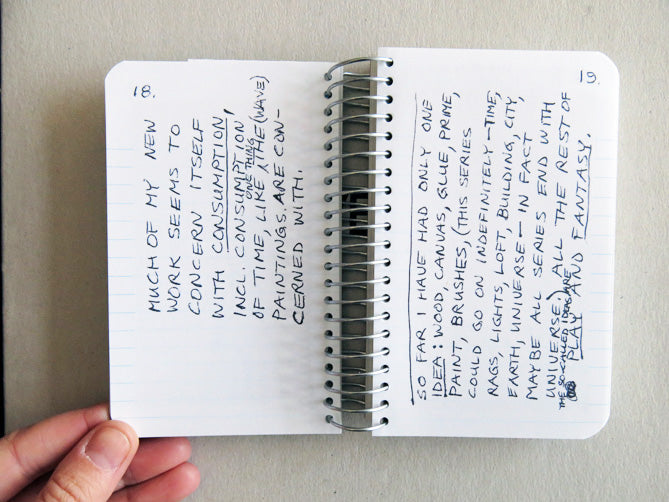 18.
MUCH OF MY NEW
WORK SEEMS TO
CONCERN ITSELF
WITH CONSUMPTION,
INCL. CONSUMPTION
ONE THING
OF TIME, LIKE, THE (WAVE)
PAINTINGS. ARE CON-
CERNED WITH.
19.
SO FAR I HAVE HAD ONLY ONE
IDEA: WOOD, CANVAS, GLUE, PRIME,
PAINT, BRUSHES, (THIS SERIES
COULD GO ON INDEFINITELY—TIME,
RAGS, LIGHTS, LOFT, BUILDING, CITY,
EARTH, UNIVERSE — IN FACT
MAYBE ALL SERIES END WITH
UNIVERSE.) ALL THE REST OF
THE SO-CALLED IDEAS ARE
PLAY AND FANTASY.